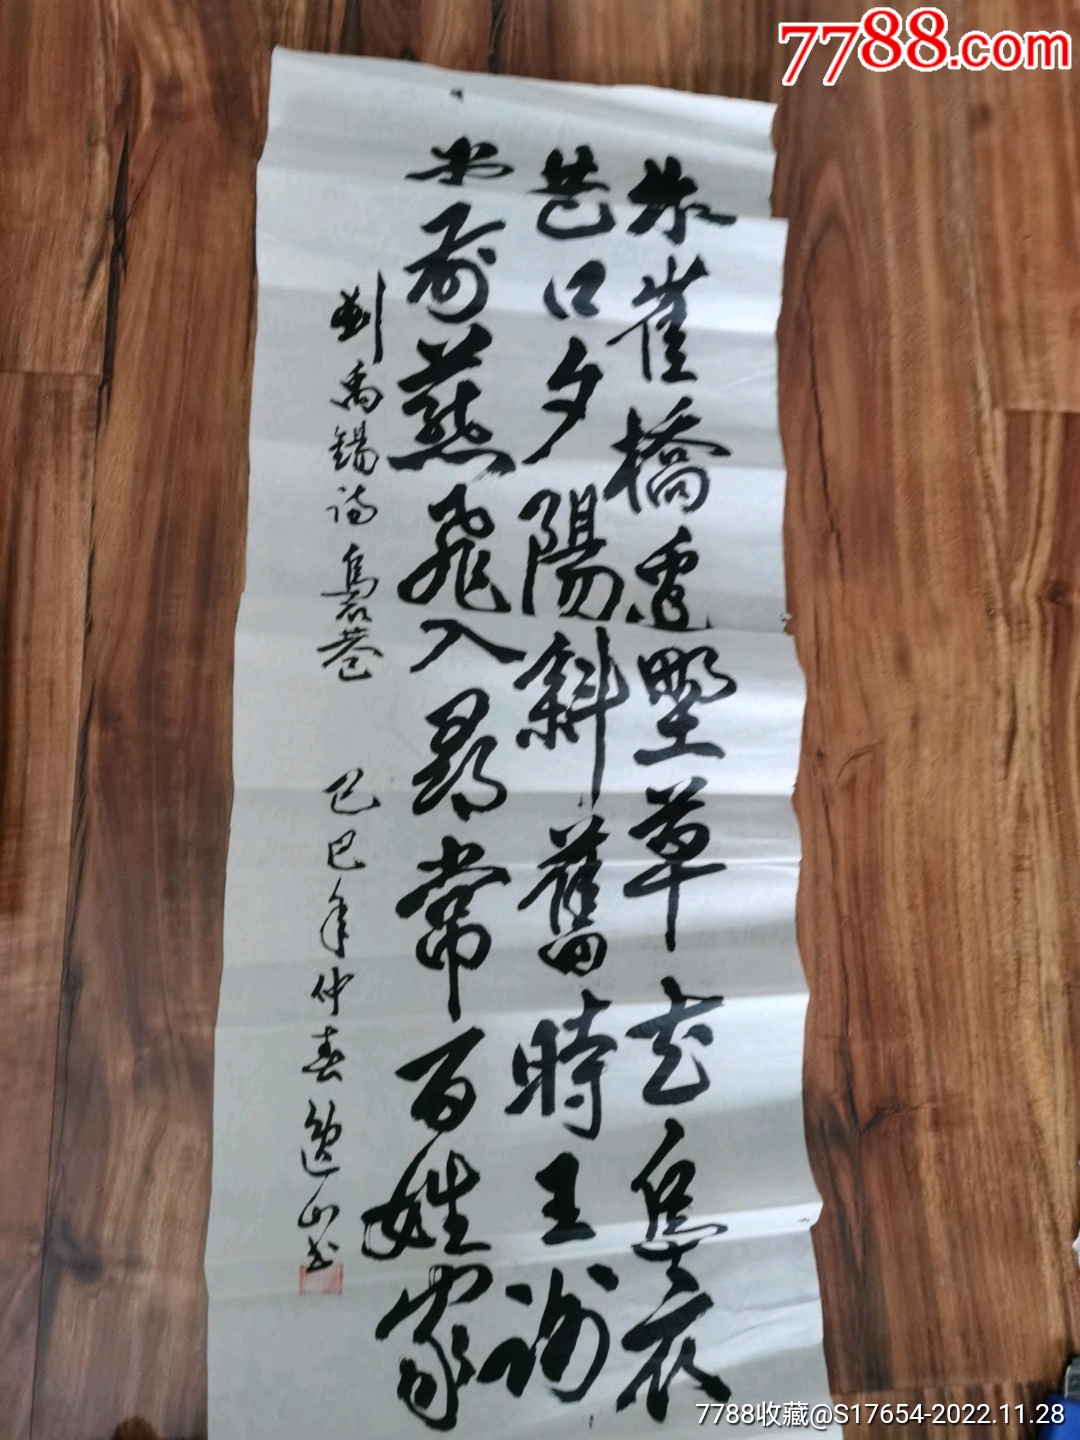 7788.com
朱雀橋邊野草花烏衣
巷口夕陽斜舊時王謝
堂前燕飛入尋常百姓家
劉禹錫詩 烏衣巷 己巳年仲春逸山书
7788收藏@S17654-2022.11.28